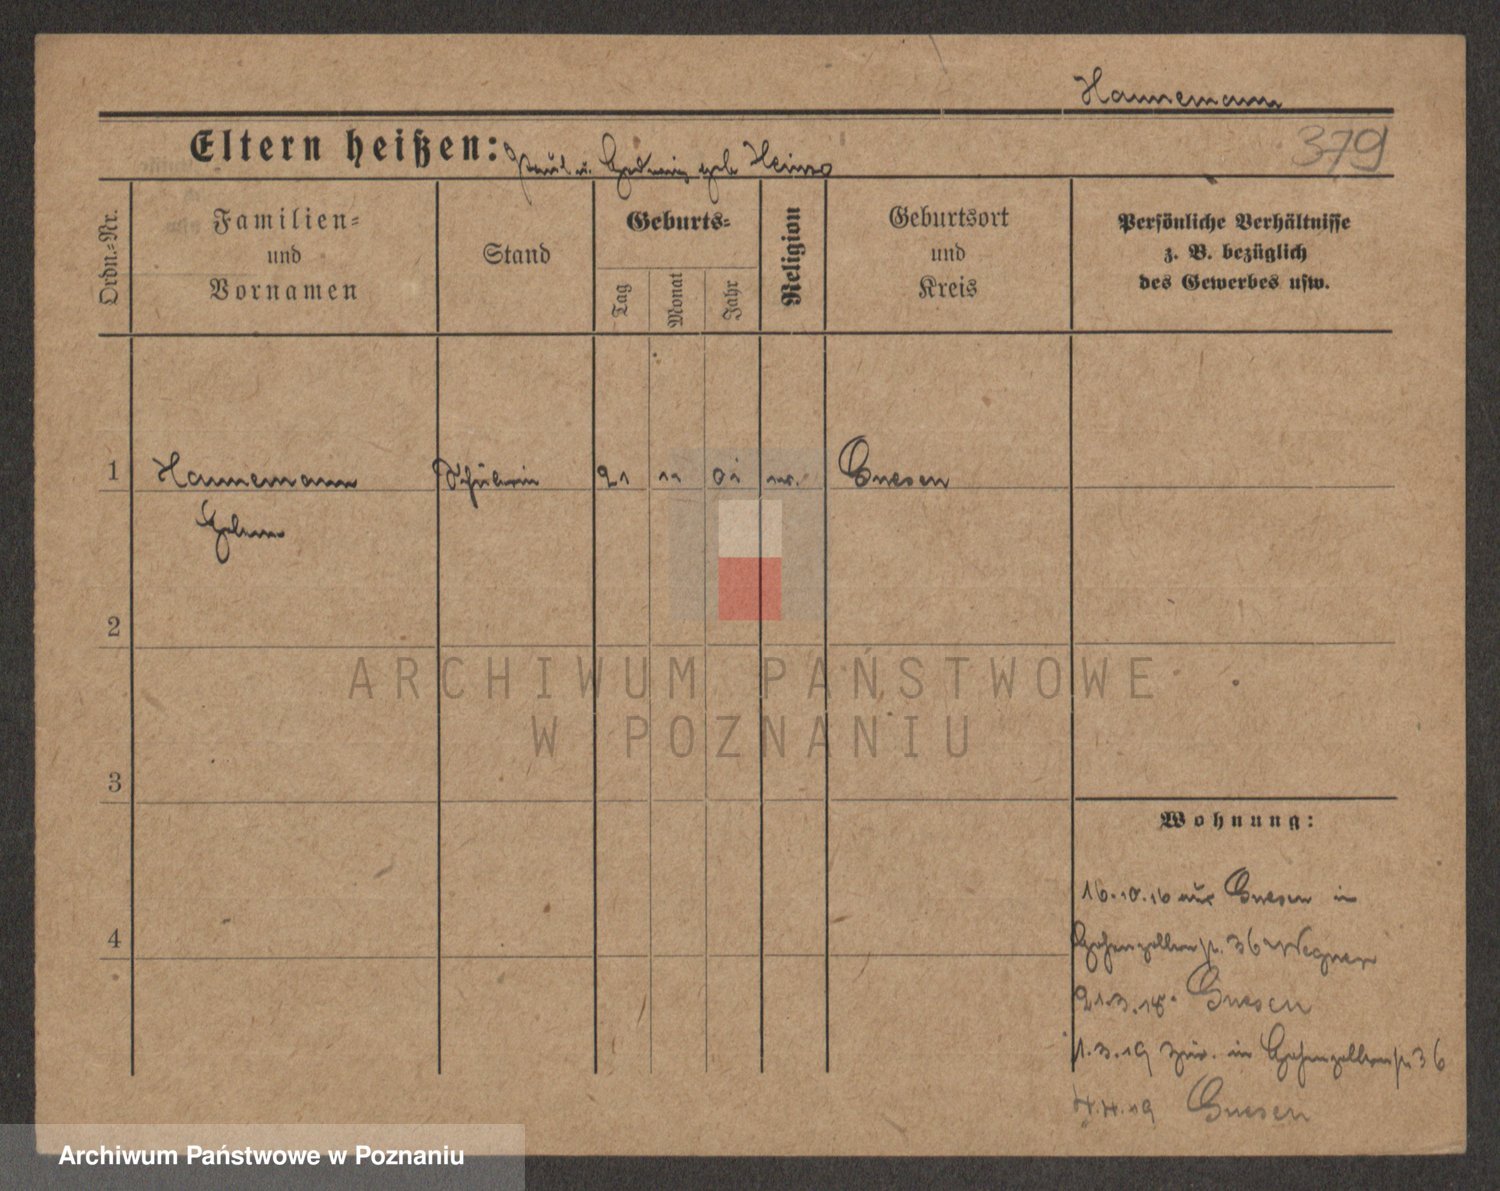 Hannemann
379
Eltern heißen: Paul u. Hedwig geb. Heinze
Ordn.-Nr.
Familien-
und
Vornamen
Stand
Geburts-
Tag
Monat
Jahr
Religion
Geburtsort
und
Kreis
Persönliche Verhältnisse
z. B. bezüglich
des Gewerbes usw.
1 Hannemann Schülerin 21 11 01 ev. Gnesen
2
3
4
Wohnung:
16.10.16 aus Gnesen in
Hohenzollernstr. 36 Wegner
21.3.18. Gnesen
1.3.19 zur. in Hohenzollernstr 36
4.4.19 Gnesen
ARCHIWUM PAŃSTWOWE
W POZNANIU
Archiwum Państwowe w Poznaniu